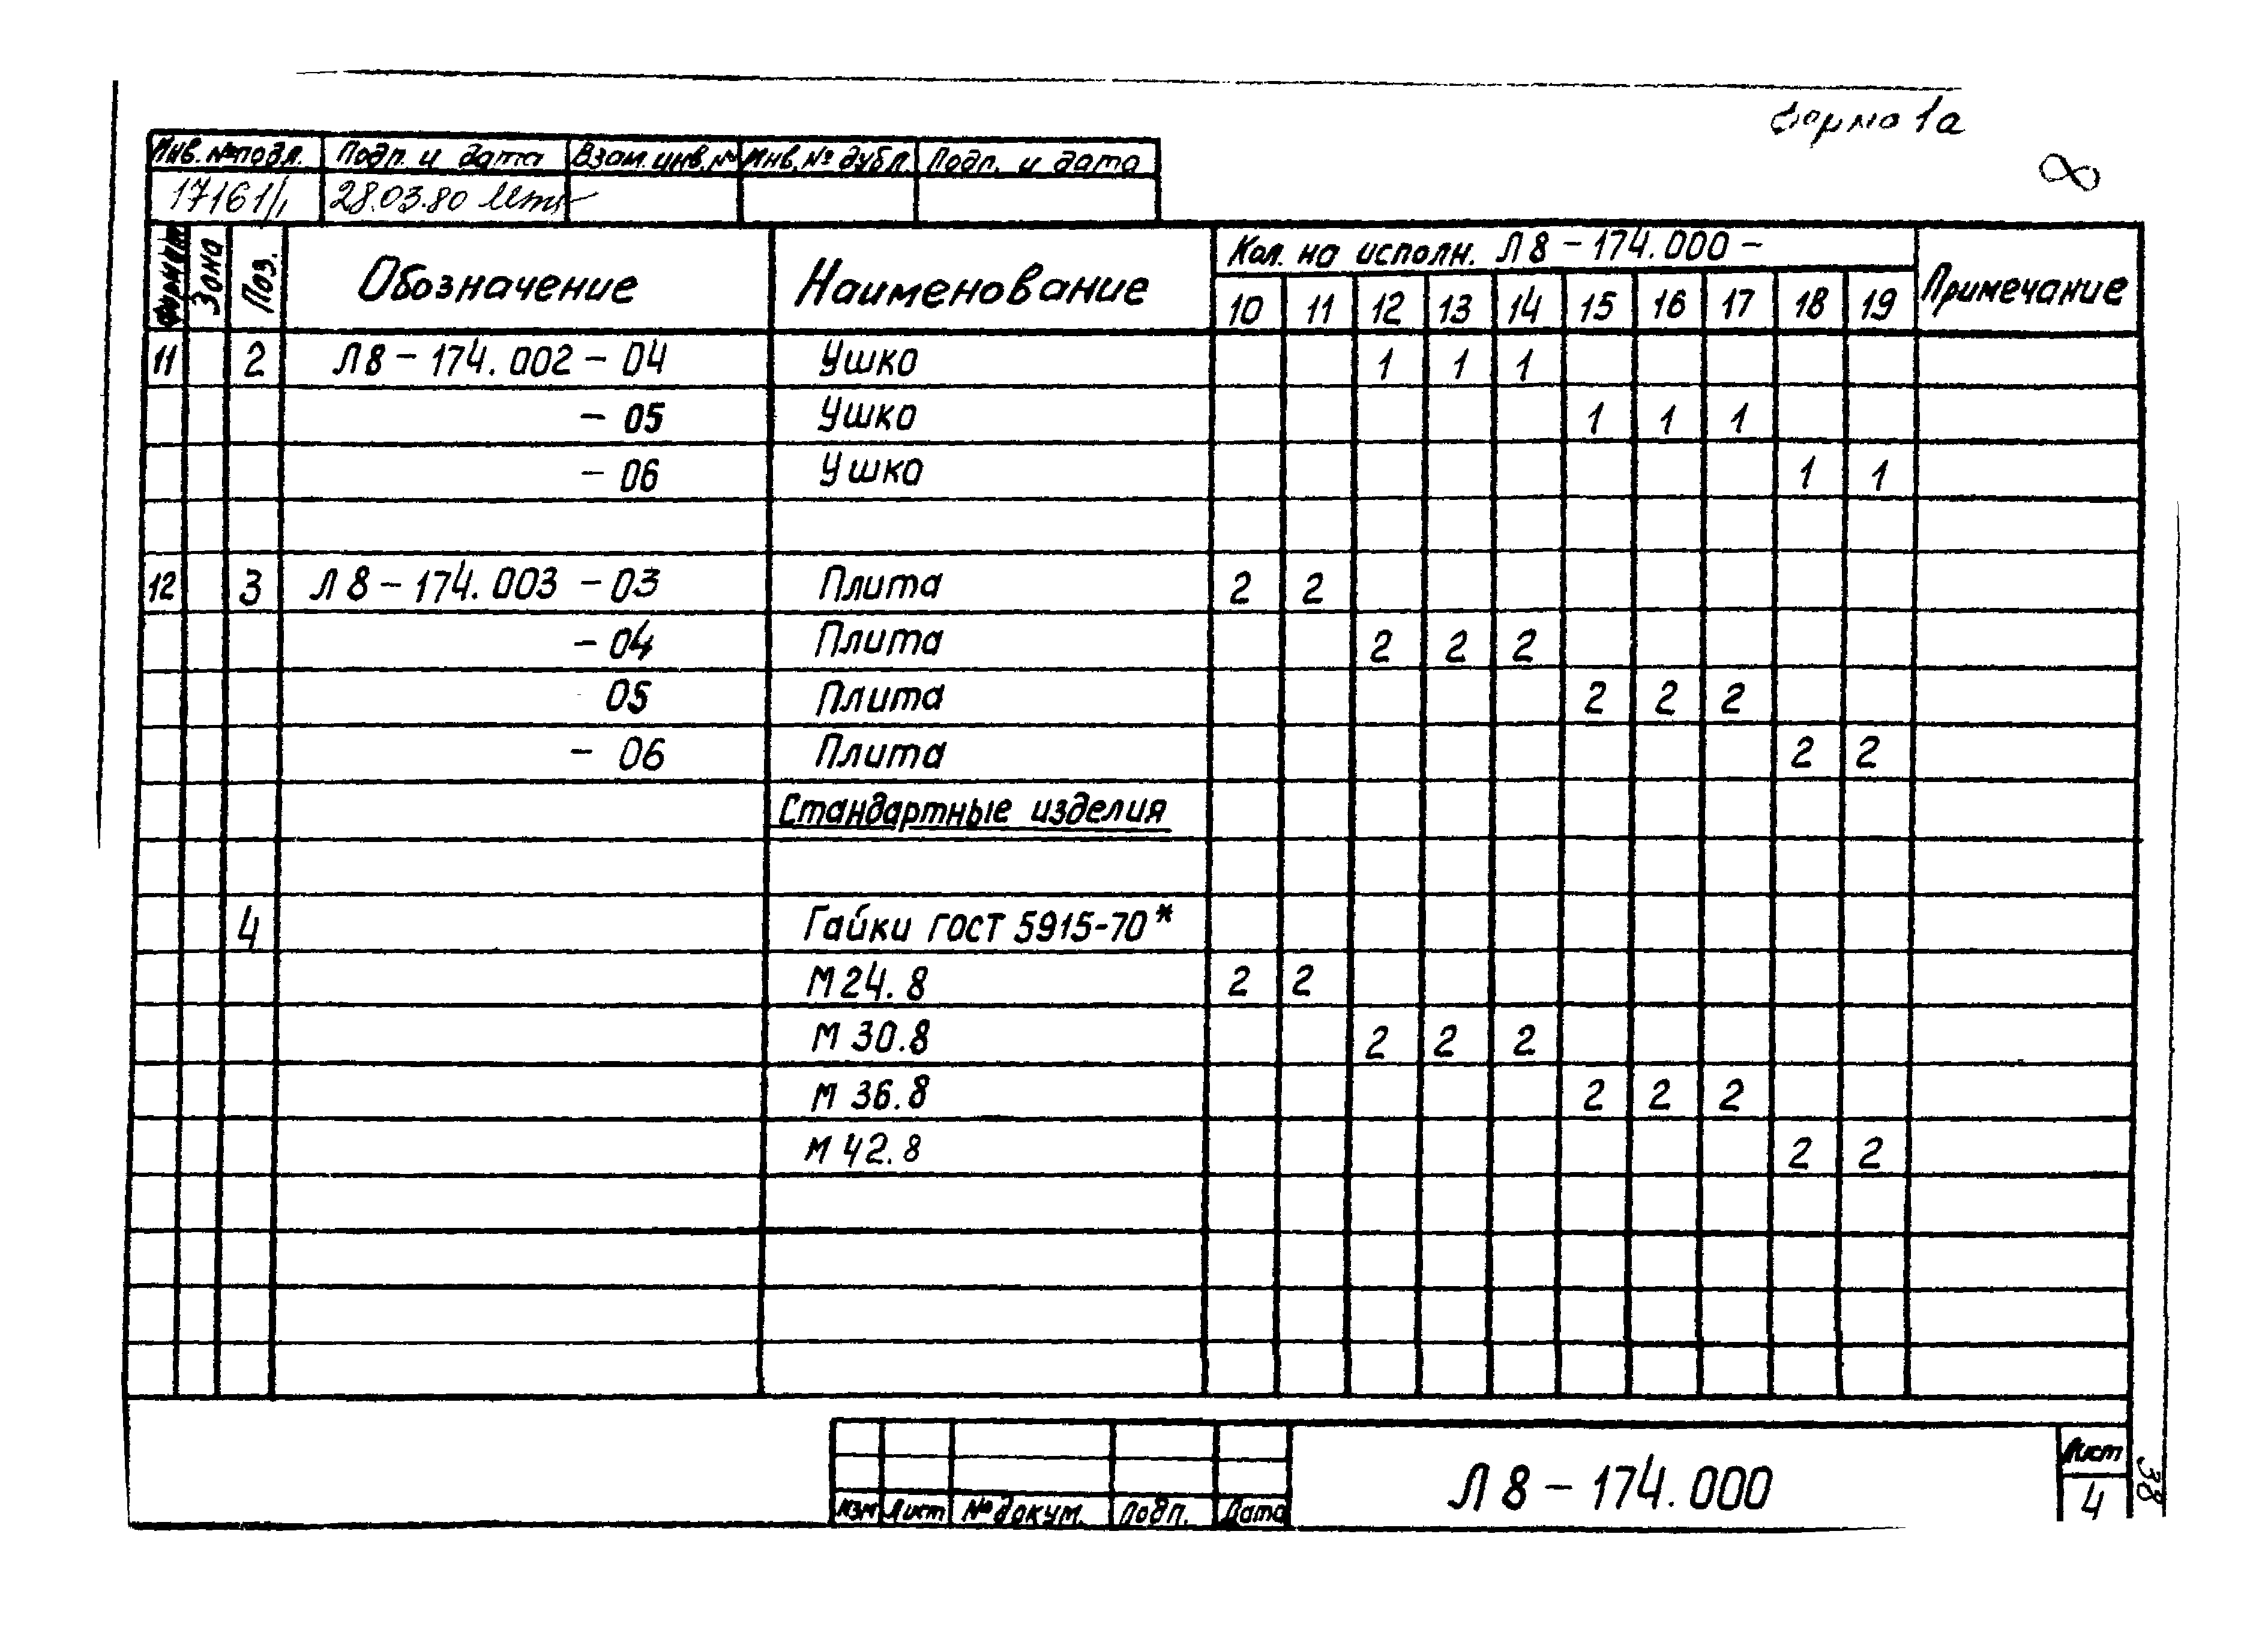 форма 1а
8
Инв. № подл. Подп. и дата Взам. инв. № Инв. № дубл. Подп. и дата
17161/1 28.03.80
Формат Зона Поз. Обозначение Наименование Кол. на исполн. Л 8 – 174.000 – Примечание
10 11 12 13 14 15 16 17 18 19
11 2 Л 8 – 174. 002 – 04 Ушко 1 1 1
– 05 Ушко 1 1 1
– 06 Ушко 1 1
12 3 Л 8 – 174. 003 – 03 Плита 2 2
– 04 Плита 2 2 2
05 Плита 2 2 2
– 06 Плита 2 2
Стандартные изделия
4 Гайки ГОСТ 5915-70*
М 24. 8 2 2
М 30.8 2 2 2
М 36.8 2 2 2
М 42.8 2 2
Изм Лист № докум. Подп. Дата
Л 8 – 174. 000
Лист
4
38